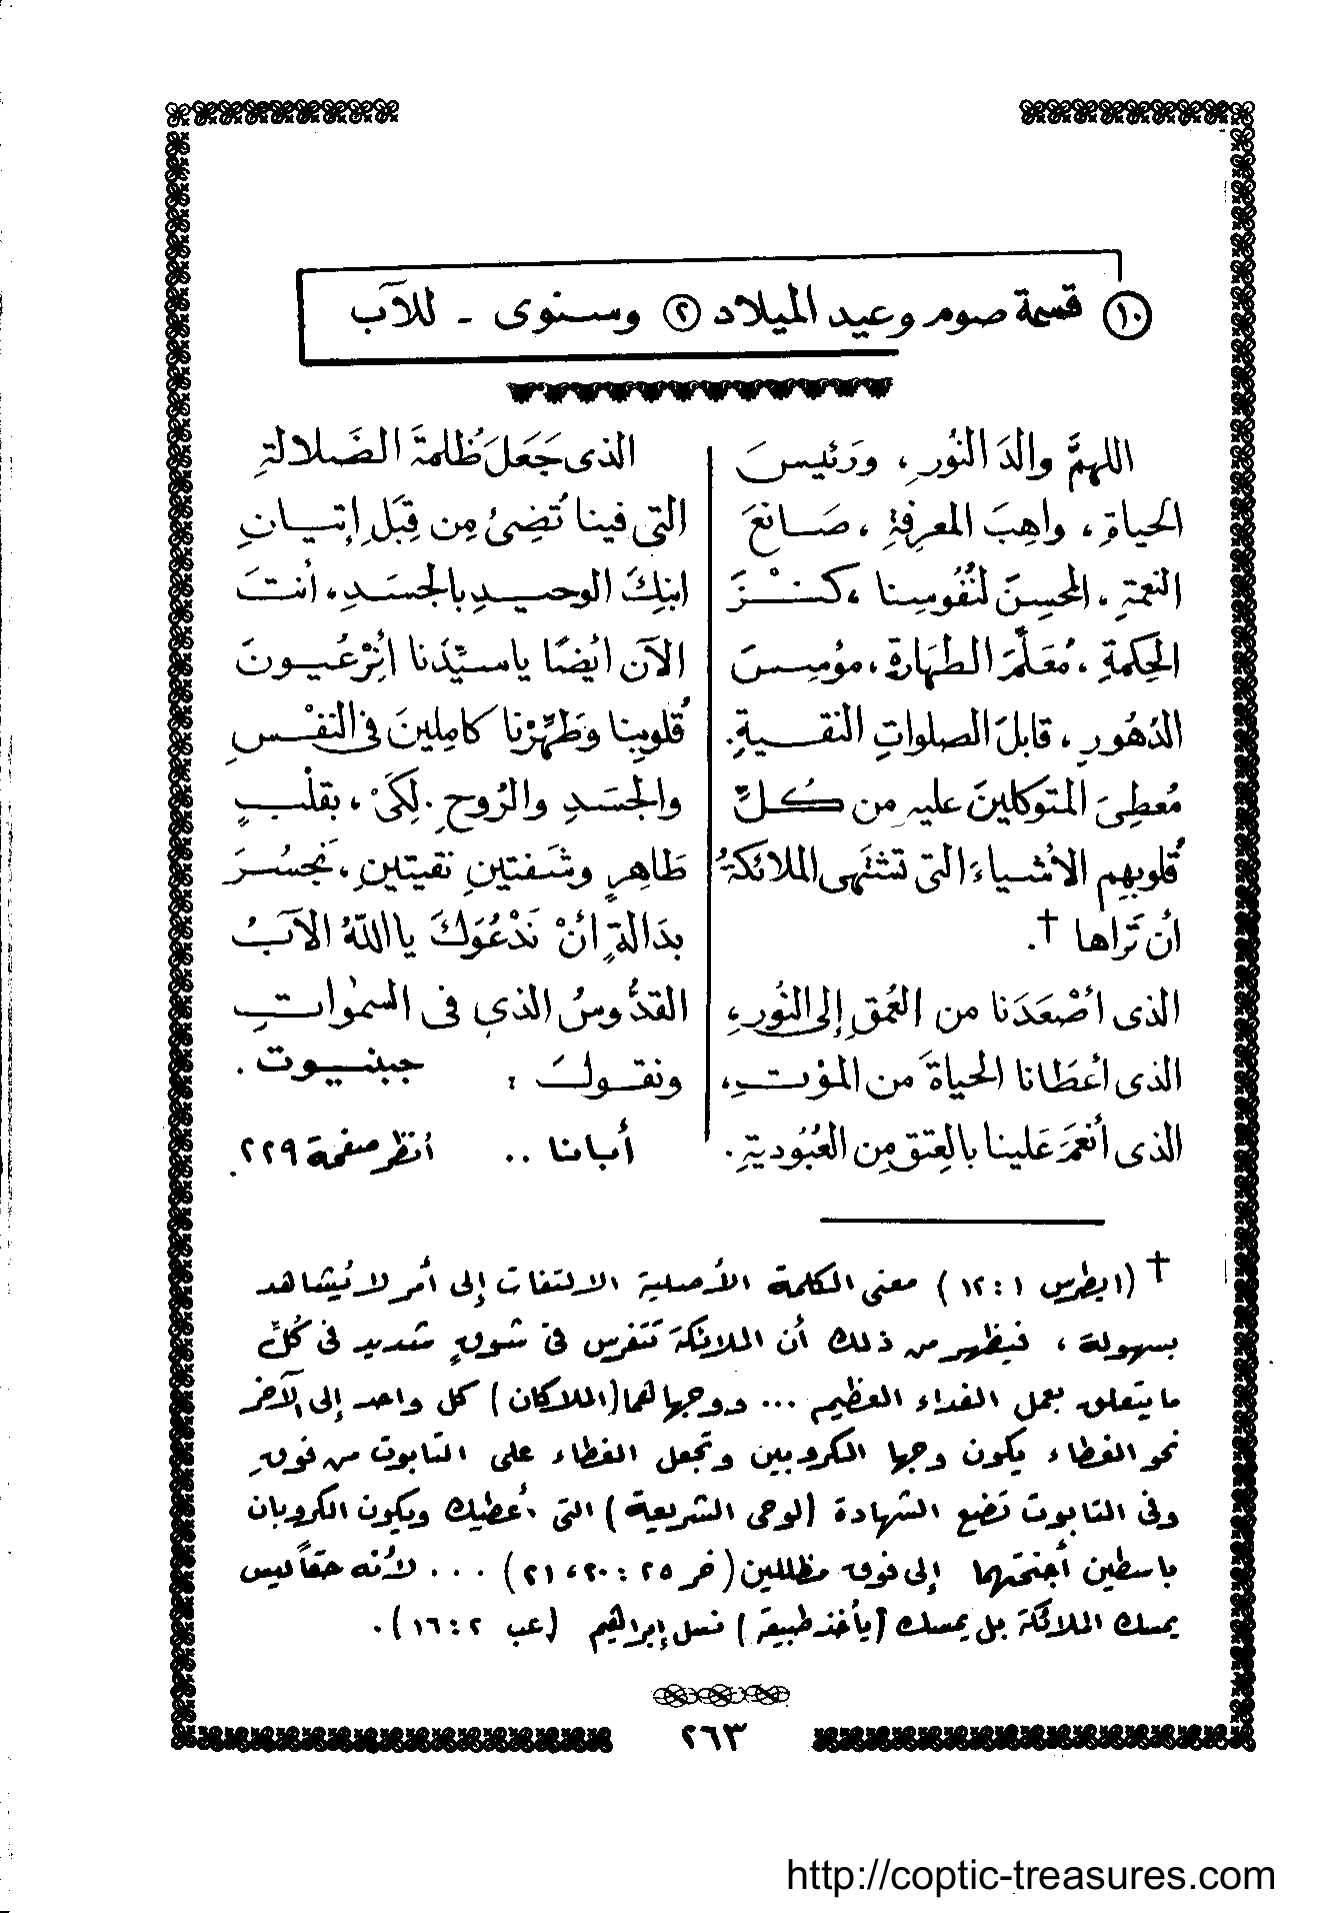 ١٠ قسمة صوم وعيد الميلاد ٢ وسنوى - للآب
اللهمَّ والدَ النُورِ، ورَئيسَ
الحياةِ، واهِبَ المعرفةِ، صَانعَ
النعمةِ، المحسِنَ لنُفُوسِنا، كنْزَ
الحِكمةِ، مُعَلِّمَ الطهَارةِ، مؤسِسَ
الدُهُورِ، قابلَ الصلواتِ النقيةِ.
مُعطِىَ المتوكلينَ عليهِ من كلِّ
قُلوبِهِم الأشياءَ التى تشتَهى الملائكةُ
أن تَراها †.
الذى أصْعَدَنا من العُمقِ إلى النُورِ،
الذى أعطَانا الحياةَ من الموْتِ،
الذى أنعَمَ عَلينا بالعِتقِ مِن العُبُوديةِ.
الذى جَعَلَ ظُلمةَ الضَلالةِ
التى فينا تُضِئُ مِن قِبَلِ إتيانِ
ابنِكَ الوحيدِ بالجسَدِ، أنتَ
الآن ايُضًا ياسيِّدَنا أنِرْ عُيونَ
قُلوبِنا وَطَهِّرْنا كامِلينَ فى النفْسِ
والجسَدِ والرُوحِ. لِكَىْ، بقلْبٍ
طَاهِرٍ وشَفتينِ نقيتينِ، نَجسُرَ
بدَالةٍ أنْ نَدْعُوَكَ ياأللهُ الآبُ
القدُّوسُ الذي فى السمٰواتِ
ونقولَ : جبنيوت.
أبانا .. أنظر صفحة ٢٢٩.
† (ابطرس ١ : ١٢) معنى الكلمة الأصلية الالتفات إلى أمر لا يُشاهد
بسهولة، فيظهر من ذلك أن الملائكة تتفرس فى شوقٍ شديد فى كُلِّ
ما يتعلق بعمل الفداء العظيم ... ووجهاهما (الملاكان) كل واحد إلى الآخر
نحو الغطاء يكون وجها الكروبين وتجعل الغطاء على التابوت من فوق
وفى التابوت تضع الشهادة (لوحى الشريعة) التى أعطيك ويكون الكروبان
باسطين أجنحتهما إلى فوق مظللين (خر ٢٥ : ٢٠، ٢١) ... لأنه حقاً ليس
يمسك الملائكة بل يمسك (يأخذ طبيعة) نسل إبراهيم (عب ٢ : ١٦).
٢٦٣
http://coptic-treasures.com